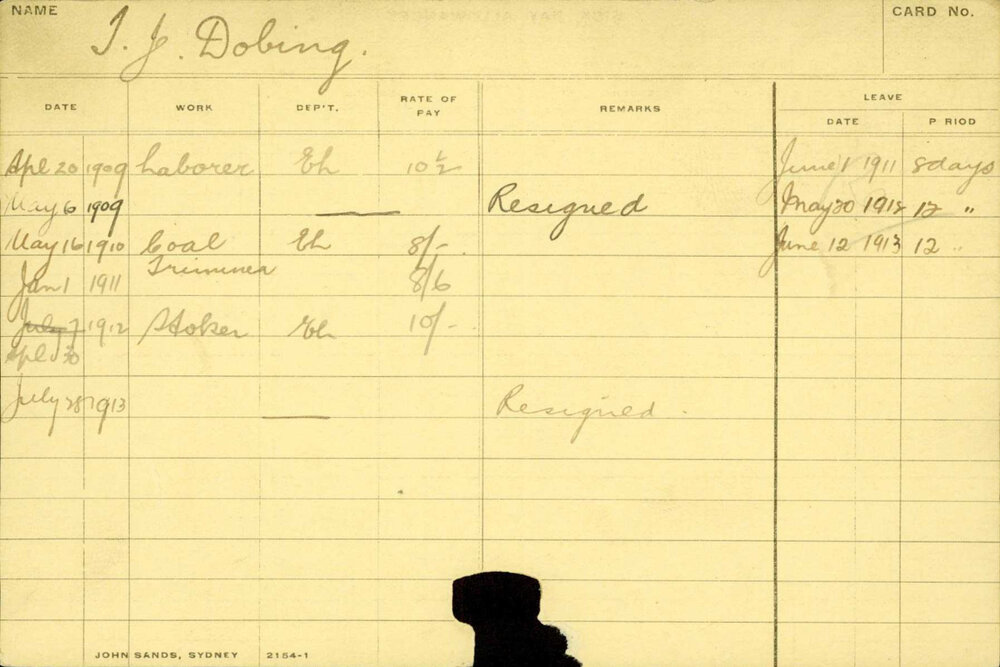 NAME
CARD No.
T. J. Dobing.
DATE WORK DEP'T. RATE OF PAY REMARKS LEAVE
DATE P RIOD
Apl 20 1909 Laborer Eh 10½ June 1 1911 8 days
May 6 1909 — Resigned May 20 1912 12 "
May 16 1910 Coal Eh 8/- June 12 1913 12 "
Trimmer
Jan 1 1911 8/6
July 7 1912 Stoker Eh 10/-
Apl 30
July 28 1913 — Resigned.
JOHN SANDS, SYDNEY 2154-1